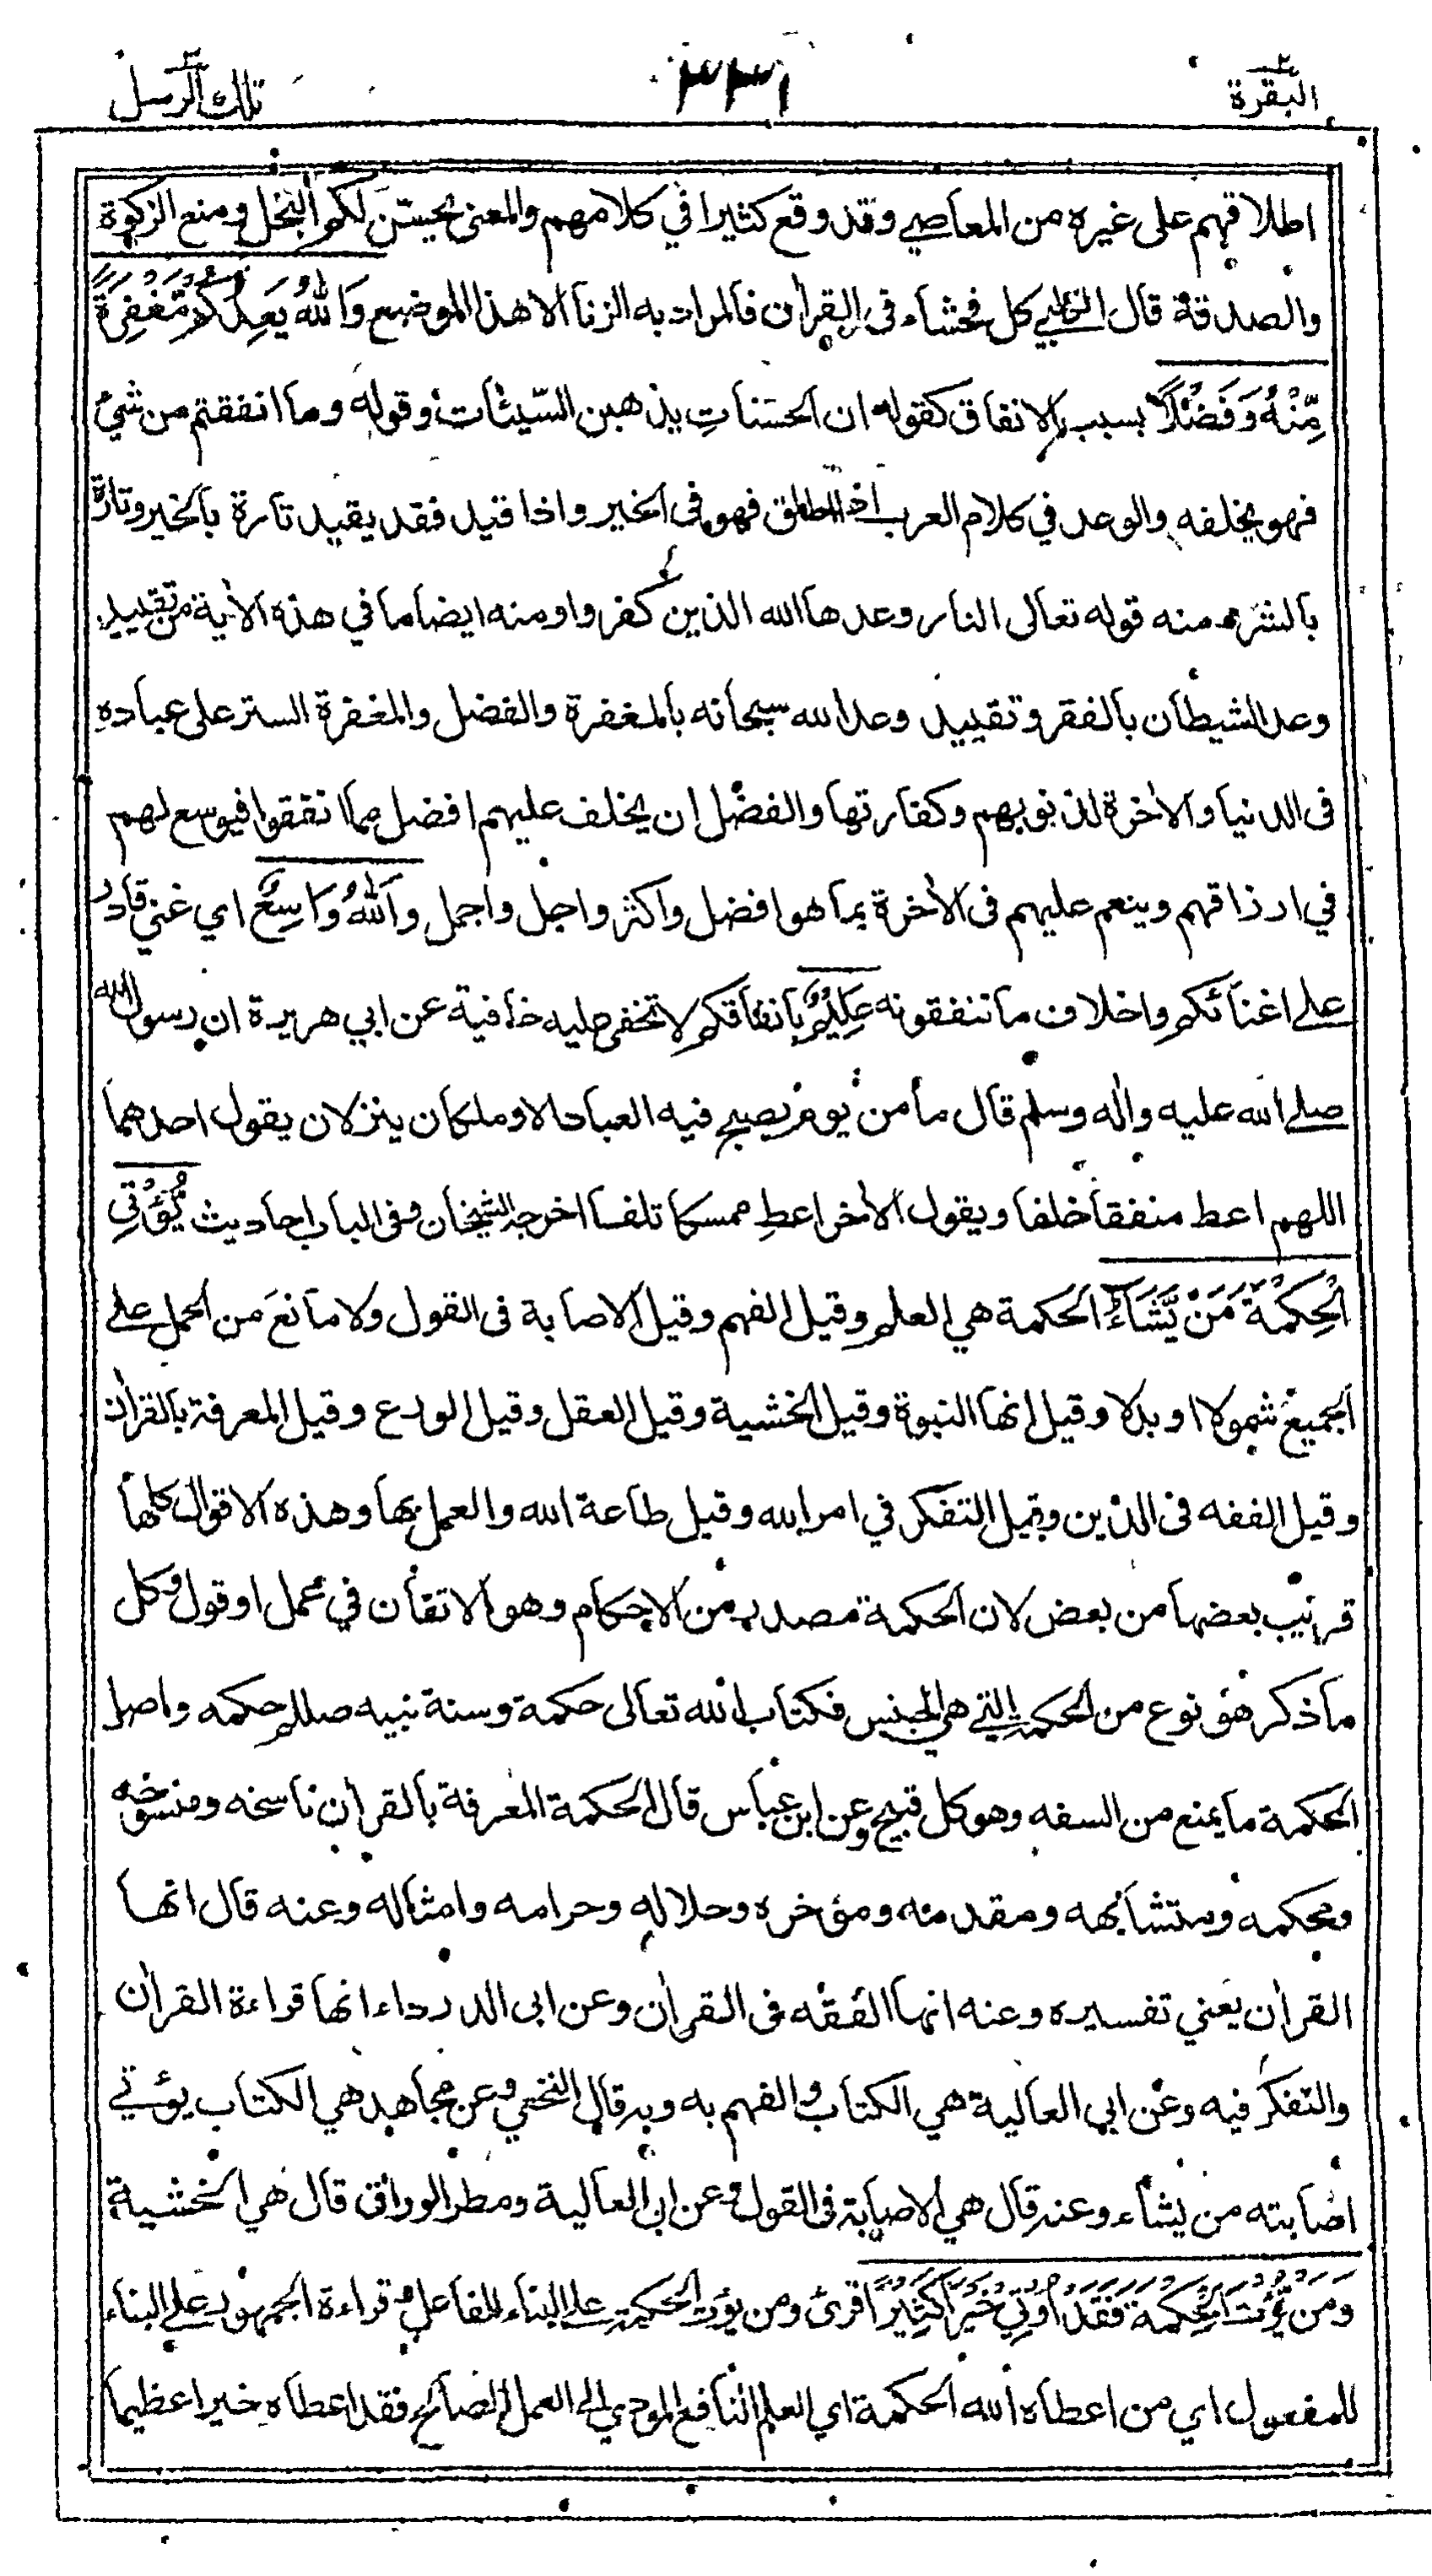 البقرة ٣٣١ تلك الرسل
اطلاقهم على غيره من المعاصي وقد وقع كثيرا في كلامهم والمعنى يحسّن لكم البخل ومنع الزكوة
والصدقة قال الكلبي كل فحشاء في القران فالمراد به الزنا الا هذا الموضع وَاللهُ يَعِدُكُمْ مَّغْفِرَةً
مِّنْهُ وَفَضْلًا بسبب الانفاق كقوله ان الحسنات يذهبن السّيئات وقوله وما انفقتم من شئ
فهو يخلفه والوعد في كلام العرب اذا اطلق فهو في الخير واذا قيد فقد يقيد تارة بالخير وتارة
بالشر ومنه قوله تعالى النار وعدها الله الذين كفروا ومنه ايضا ما في هذه الأية من تقييد
وعد الشيطان بالفقر وتقييد وعد الله سبحانه بالمغفرة والفضل والمغفرة الستر على عباده
في الدنيا والأخرة لذنوبهم وكفارتها والفضل ان يخلف عليهم افضل مما انفقوا فيوسع لهم
في ارزاقهم وينعم عليهم في الأخرة بما هو افضل واكثر واجل واجمل وَاللهُ وَاسِعٌ اي غني قادر
على اغنائكم واخلاف ما تنفقونه عَلِيْمٌ بانفاقكم لا تخفى عليه خافية عن ابي هريرة ان رسول الله
صلى الله عليه واٰله وسلم قال ما من يوم يصبح فيه العباد الا وملكان ينزلان يقول احدهما
اللهم اعط منفقا خلفا ويقول الأخر اعط ممسكا تلفا اخرجه الشيخان وفي الباب احاديث يُّؤْتِي
الْحِكْمَةَ مَنْ يَّشَاءُ الحكمة هي العلم وقيل الفهم وقيل الاصابة في القول ولا مانع من الحمل على
الجميع شمولا او بدلا وقيل انها النبوة وقيل الخشية وقيل العقل وقيل الورع وقيل المعرفة بالقراٰن
وقيل الفقه في الدين وقيل التفكر في امر الله وقيل طاعة الله والعمل بها وهذه الاقوال كلها
قريب بعضها من بعض لان الحكمة مصدر من الاحكام وهو الاتقان في عمل او قول وكل
ما ذكر هو نوع من الحكمة التي هي الجنس فكتاب الله تعالى حكمة وسنة نبيه صللم حكمه واصل
الحكمة ما يمنع من السفه وهو كل قبيح وعن ابن عباس قال الحكمة المعرفة بالقراٰن ناسخه ومنسوخه
ومحكمه ومتشابهه ومقدمه ومؤخره وحلاله وحرامه وامثاله وعنه قال انها
القراٰن يعني تفسيره وعنه انها الفقه في القراٰن وعن ابي الدرداء انها قراءة القراٰن
والتفكر فيه وعن ابي العالية هي الكتاب والفهم به وبه قال النخعي وعن مجاهد هي الكتاب يؤتي
اصابته من يشاء وعنه قال هي الاصابة في القول وعن ابي العالية ومطر الوراق قال هي الخشية
وَمَنْ يُّؤْتَ الْحِكْمَةَ فَقَدْ اُوْتِيَ خَيْرًا كَثِيْرًا قرئ ومن يؤت الحكمة على البناء للفاعل وقراءة الجمهور على البناء
للمفعول اي من اعطاه الله الحكمة اي العلم النافع المودي الى العمل الصالح فقد اعطاه خيرا عظيما